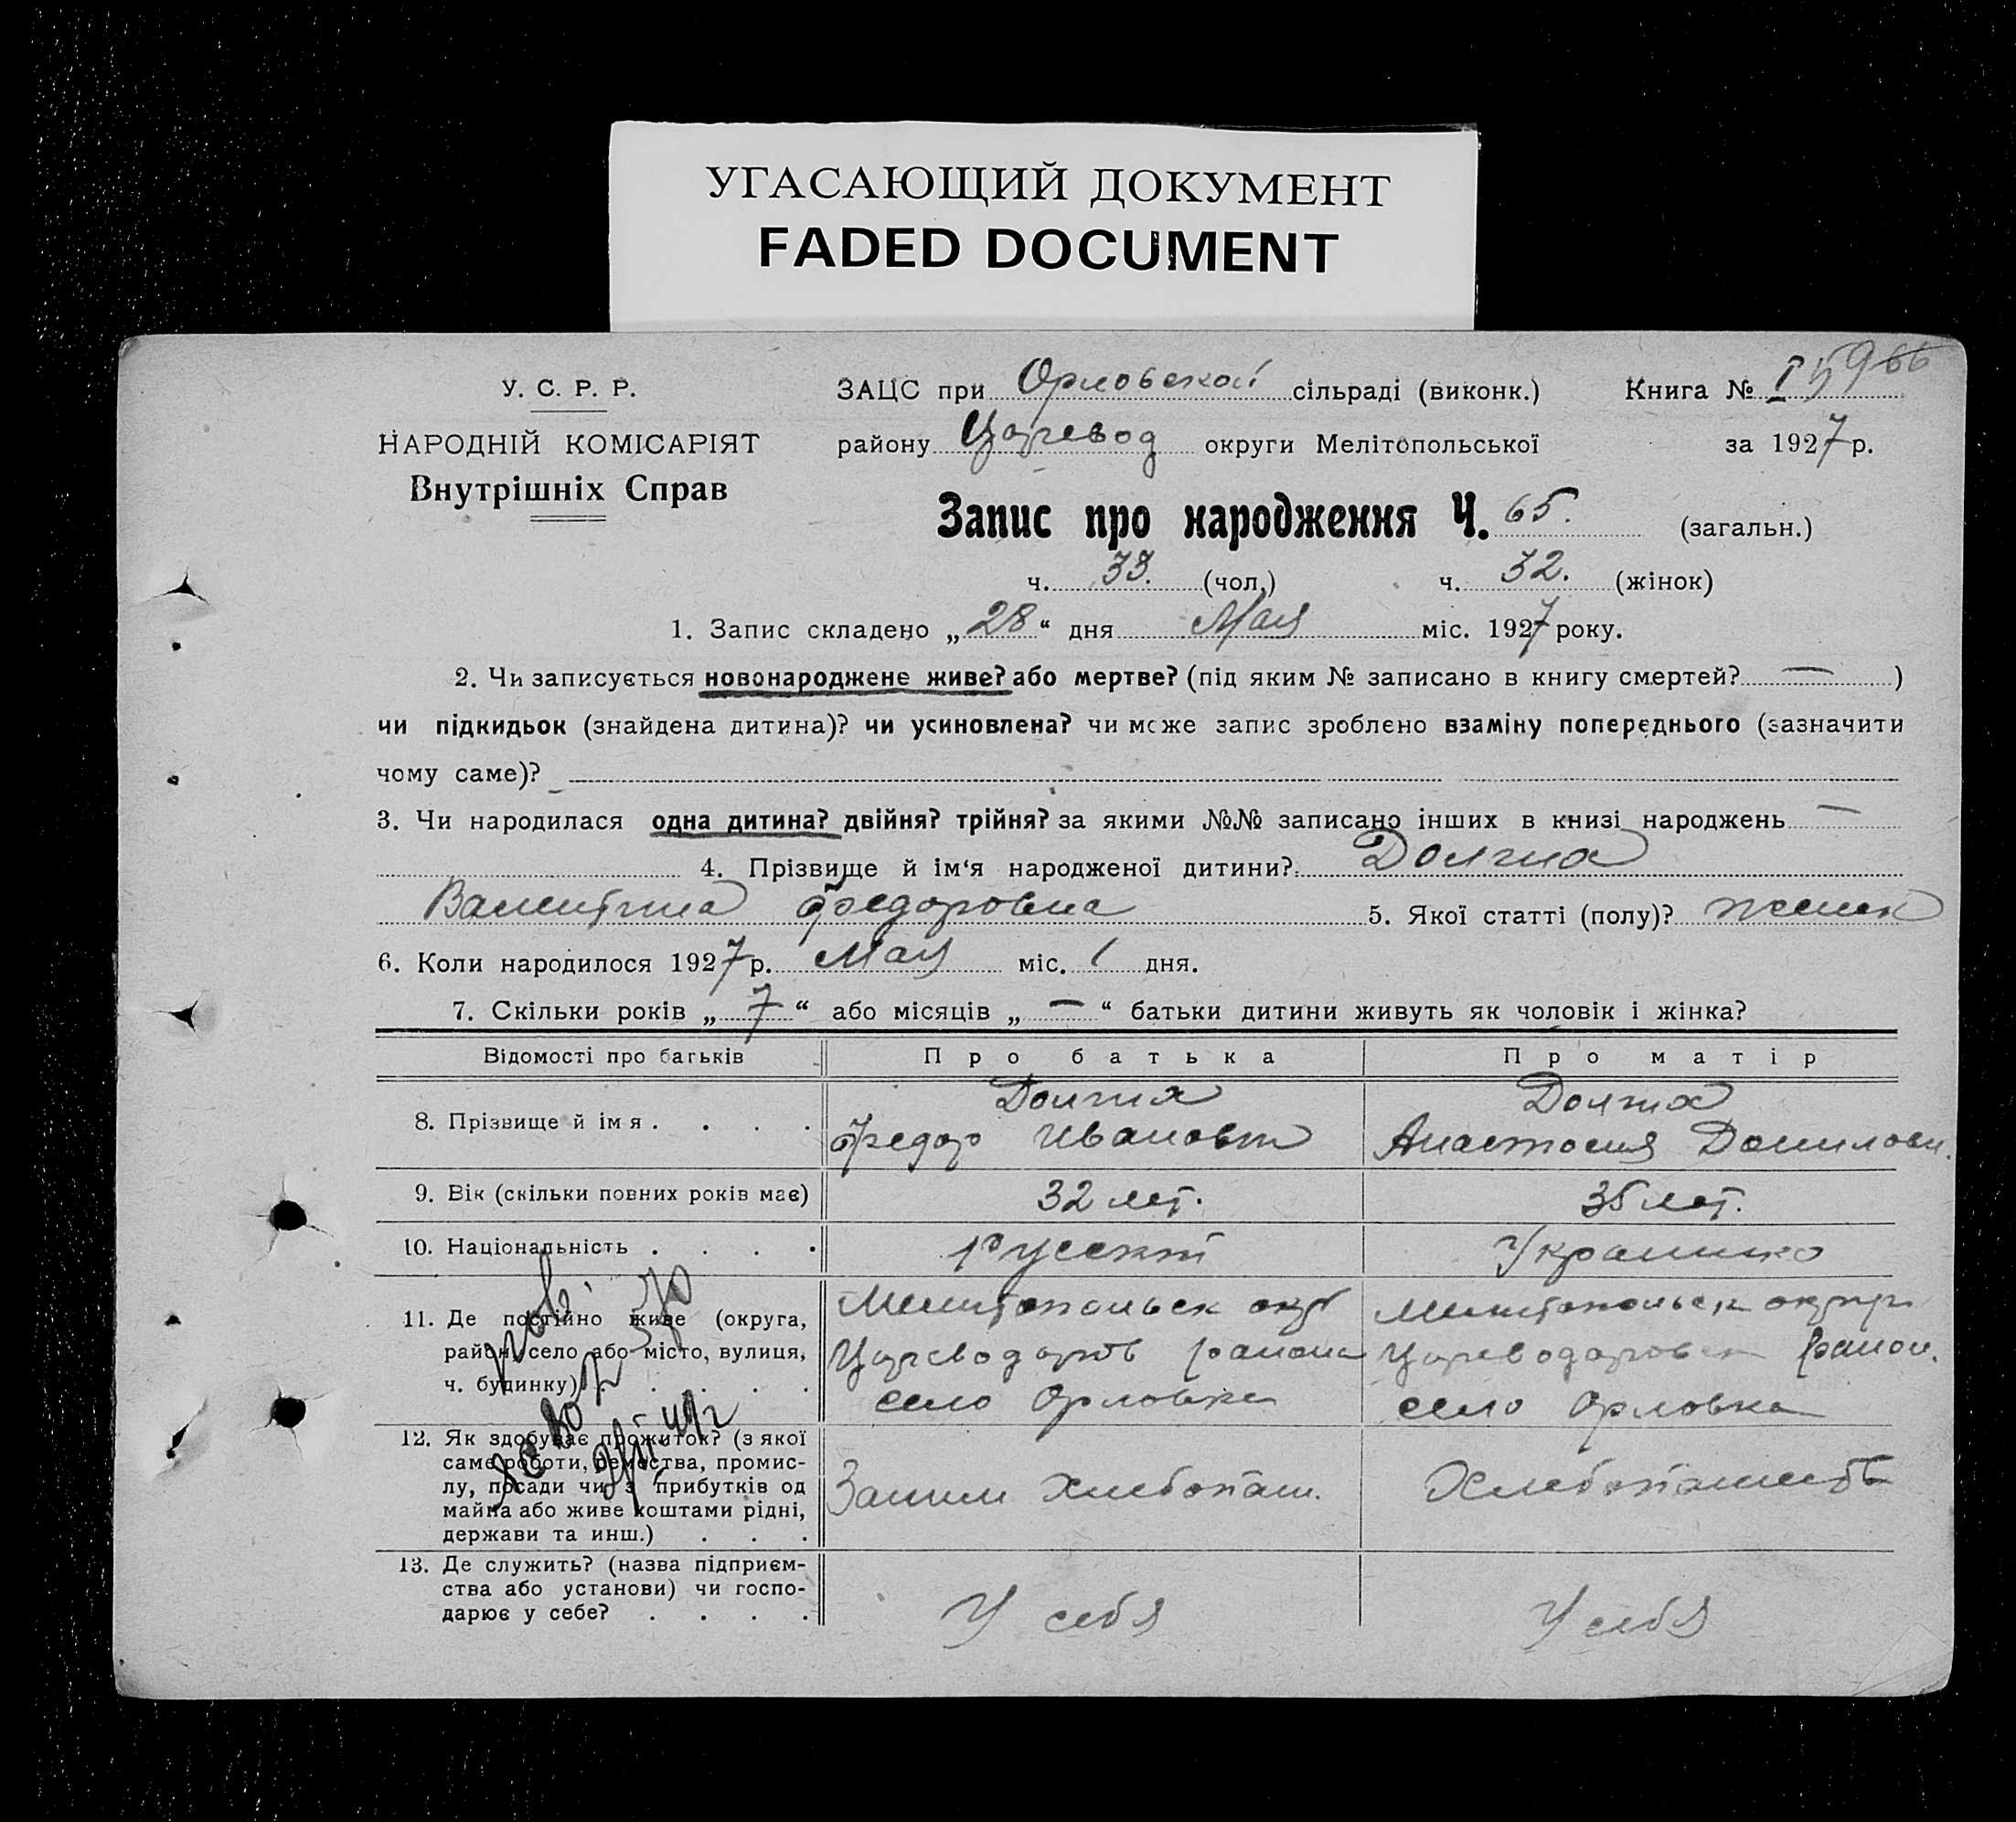 УГАСАЮЩИЙ ДОКУМЕНТ
FADED DOCUMENT
У. С. Р. Р.
НАРОДНІЙ КОМІСАРІЯТ
Внутрішніх Справ
ЗАЦС при Орловской сільраді (виконк.)
району Царевод округи Мелітопольської
Книга № I 59
за 1927 р.
Запис про народження Ч. 65. (загальн.)
ч. 33. (чол.) ч. 32. (жінок)
1. Запис складено „28“ дня Мая міс. 1927 року.
2. Чи записується новонароджене живе? або мертве? (під яким № записано в книгу смертей? — )
чи підкидьок (знайдена дитина)? чи усиновлена? чи може запис зроблено взаміну попереднього (зазначити
чому саме)?
3. Чи народилася одна дитина? двійня? трійня? за якими №№ записано інших в книзі народжень —
4. Прізвище й ім‘я народженої дитини? Долгих
Валентина Федоровна 5. Якої статті (полу)? женск
6. Коли народилося 1927 р. Мая міс. 1 дня.
7. Скільки років „7“ або місяців „—“ батьки дитини живуть як чоловік і жінка?
Відомості про батьків Про батька Про матір
8. Прізвище й імя . . . . Долгих Долгих
Федор Иванович Анастасия Данилов.
9. Вік (скільки повних років має) 32 лет. 35 лет.
10. Національність . . . . Русский Украинка
11. Де постійно живе (округа, Мелитопольск окр Мелитопольск окр
район, село або місто, вулиця, Цареводаров района Цареводаровск район.
ч. будинку) . . . . село Орловка село Орловка
12. Як здобуває прожиток? (з якої
саме роботи, ремества, промис-
лу, посади чи з прибутків од Заним Хлебопаш. Хлебопашеств
майна або живе коштами рідні,
держави та инш.) . . .
13. Де служить? (назва підприєм-
ства або установи) чи госпо-
дарює у себе? . . . . У себя У себя